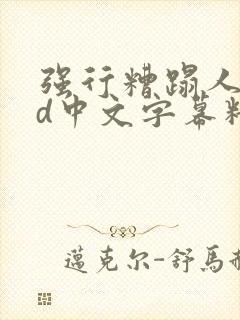 强行糟蹋人
d中文字幕
邁克尔-舒馬